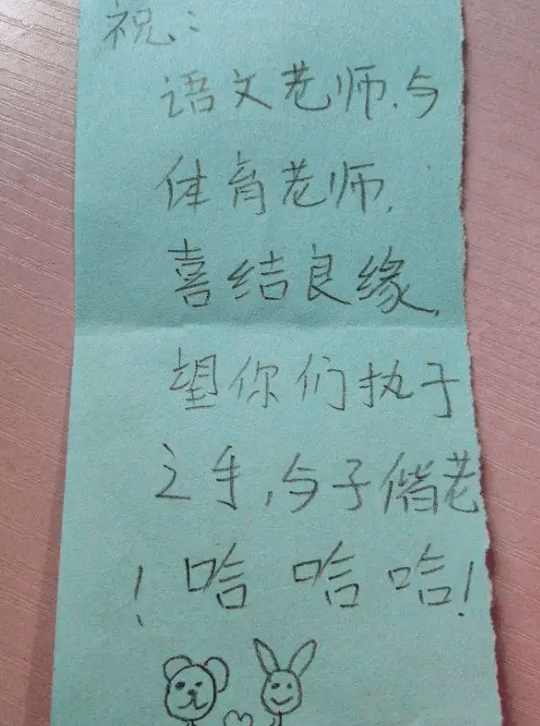 祝：
语文老师、与
体育老师，
喜结良缘，
望你们执子
之手，与子偕老
！哈哈哈！